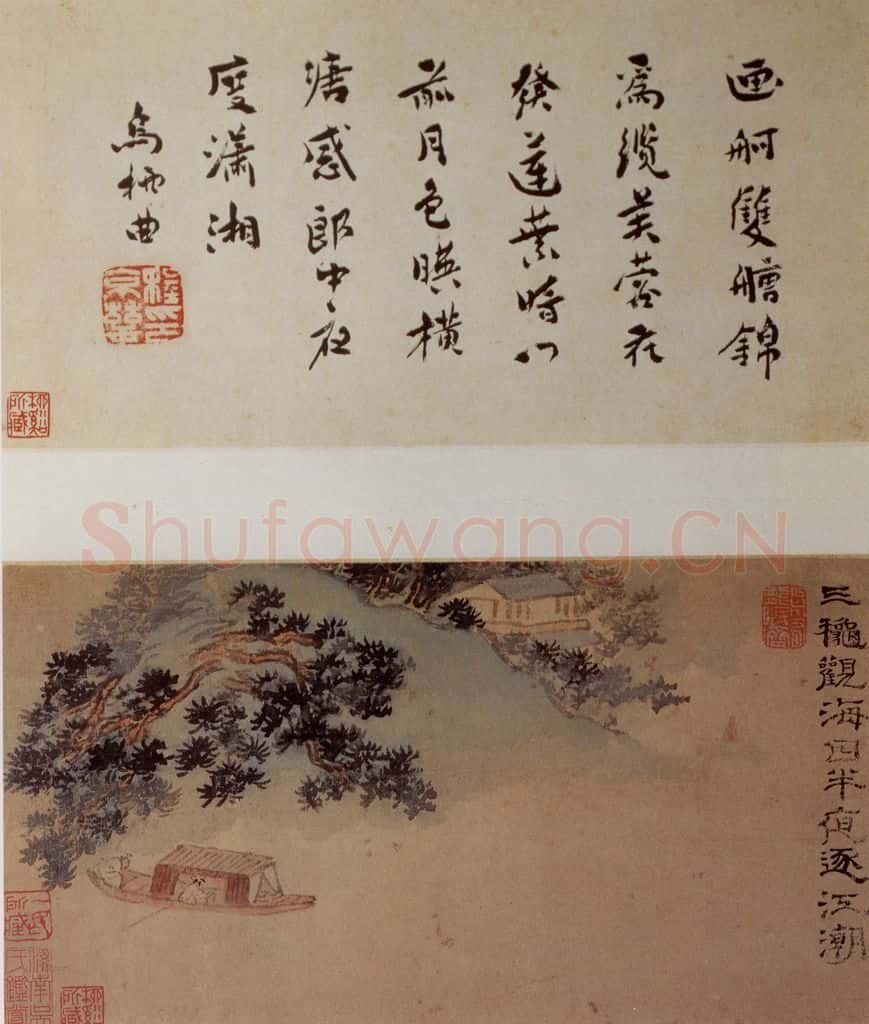 画舸雙艚錦
為纜芙蓉花
發蓮葉暗门
前月色暎橫
塘感郎中夜
度瀟湘
烏栖曲
Shufawang.CN
三龝觀海日半夜逐江潮